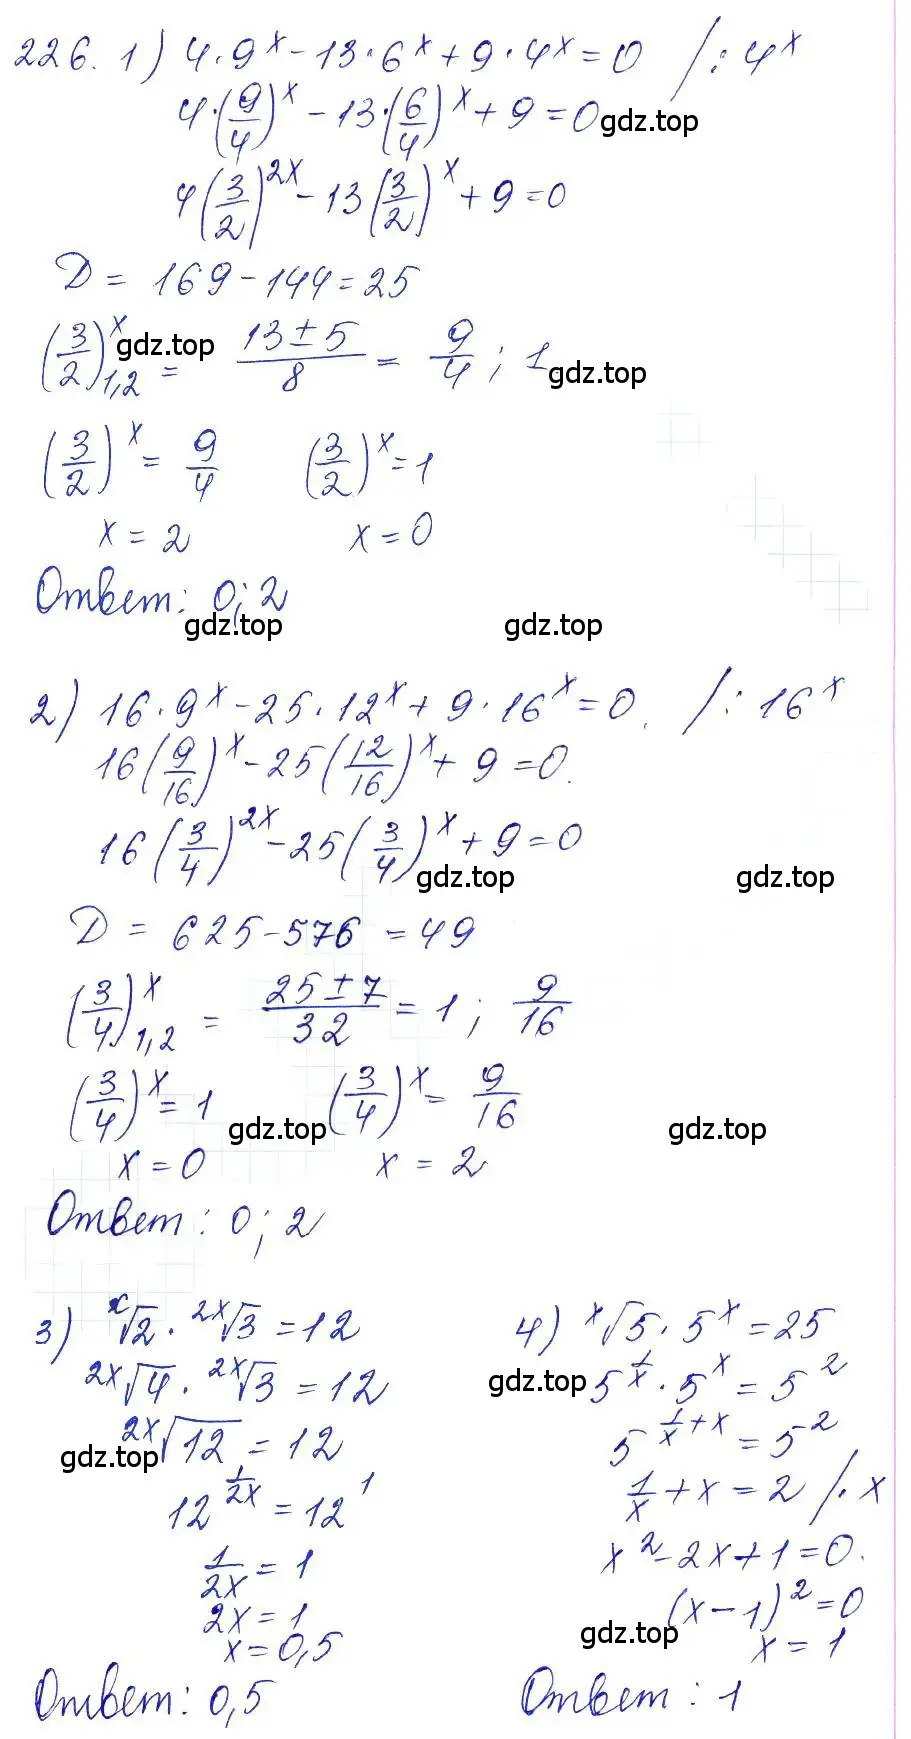 226. 1) 4·9^x − 13·6^x + 9·4^x = 0 /: 4^x
4·(9/4)^x − 13·(6/4)^x + 9 = 0 gdz.top
4(3/2)^2x − 13(3/2)^x + 9 = 0
D = 169 − 144 = 25
(3/2)^x_1,2 = (13 ± 5)/8 = 9/4; 1
gdz.top gdz.top
(3/2)^x = 9/4 (3/2)^x = 1
x = 2 x = 0
Ответ: 0; 2
gdz.top gdz.top
2) 16·9^x − 25·12^x + 9·16^x = 0. /: 16^x
16(9/16)^x − 25(12/16)^x + 9 = 0.
16(3/4)^2x − 25(3/4)^x + 9 = 0
gdz.top gdz.top
D = 625 − 576 = 49
(3/4)^x_1,2 = (25 ± 7)/32 = 1; 9/16
(3/4)^x = 1 (3/4)^x = 9/16
gdz.top gdz.top
x = 0 x = 2
Ответ: 0; 2
3) ^x√2 · ^2x√3 = 12
^2x√4 · ^2x√3 = 12
^2x√12 = 12
gdz.top
12^(1/2x) = 12^1
1/2x = 1
2x = 1
x = 0,5
Ответ: 0,5
4) ^x√5 · 5^x = 25
gdz.top 5^(1/x) · 5^x = 5^2
5^(1/x + x) = 5^2
1/x + x = 2 /· x
x^2 − 2x + 1 = 0.
(x − 1)^2 = 0
gdz.top
x = 1
Ответ: 1